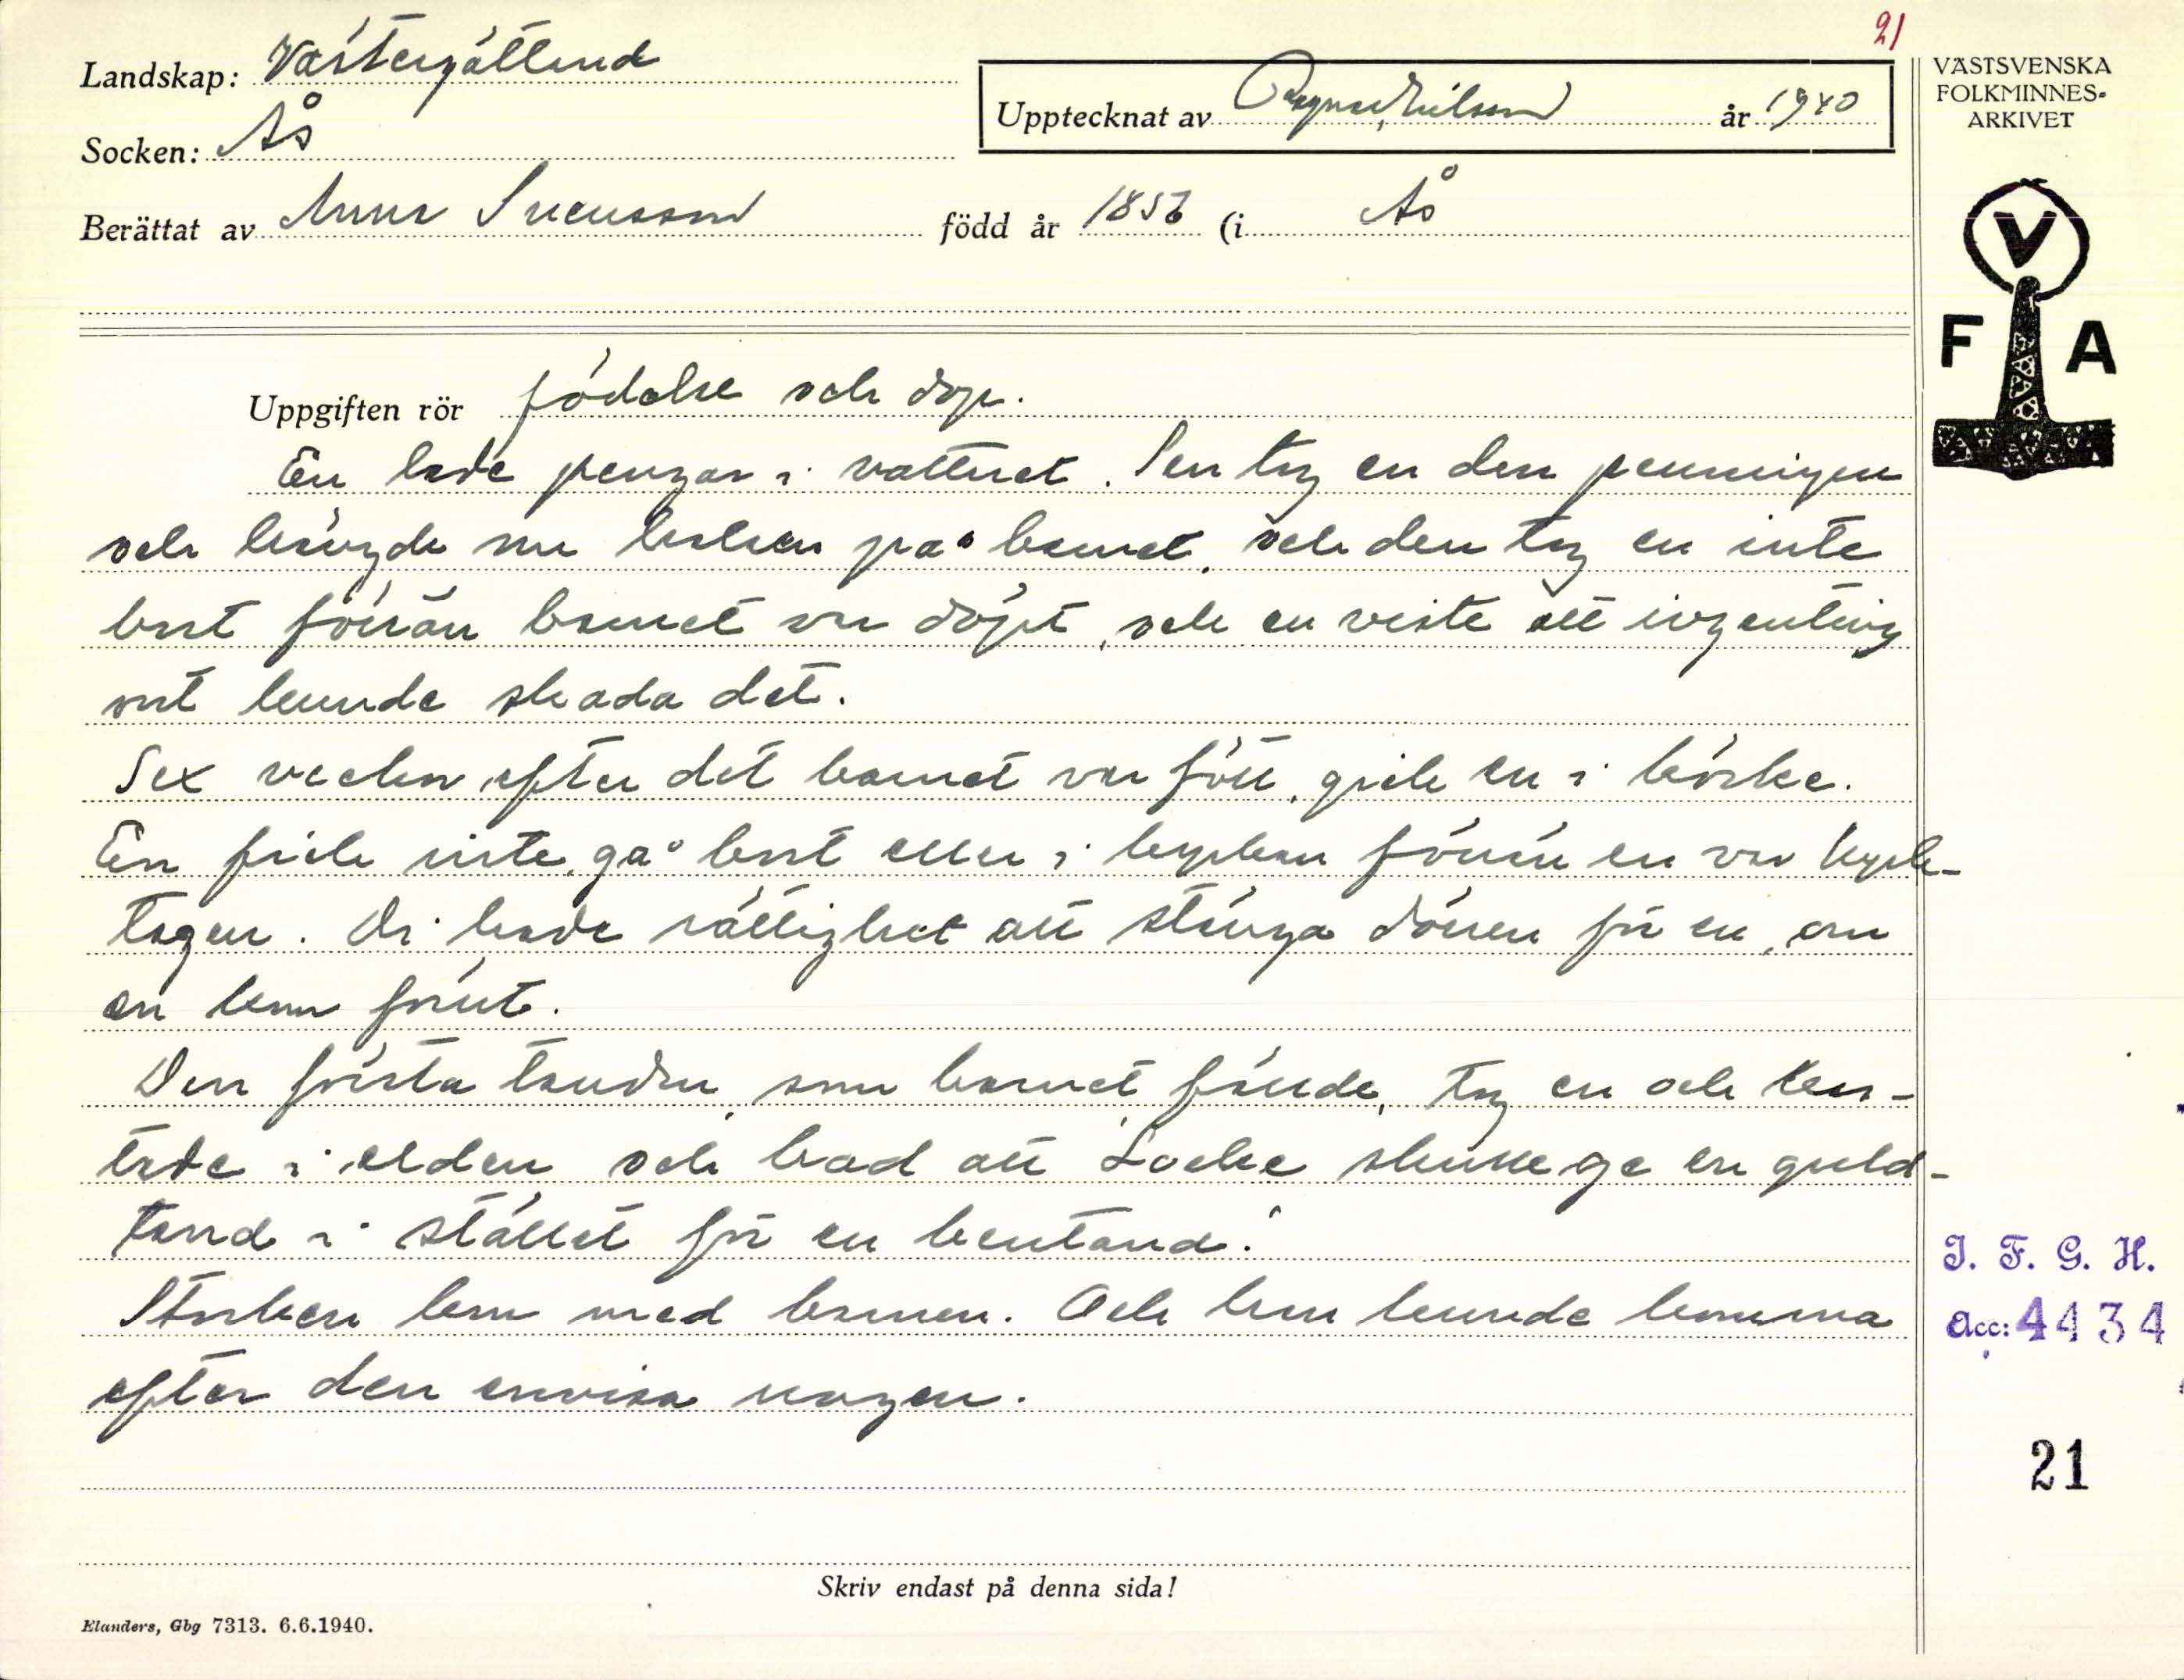 21
Landskap: Västergötland
Socken: Ås
Upptecknat av Ragnar Nilsson år 1940
Berättat av Anna Svensson född år 1856 (i Ås
VÄSTSVENSKA
FOLKMINNES-
ARKIVET
V
F A
Uppgiften rör födelse och dop.
En lade pengar i vattnet. Sen tog en den penningen
och hängde om halsen på barnet, och den tog en inte
bort förrän barnet var döpt, och en visste att ingenting
ont kunde skada det.
Sex veckor efter det barnet var fött, gick en i körke.
En fick inte gå bort eller i kyrkan förrän en var kyrk-
tagen. Di hade rättighet att stänga dörren för en, om
en kom förut.
Den första tanden, som barnet fällde, tog en och kas-
tade i elden och bad att Locke skulle ge en guld-
tand i stället för en bentand.
Storken kom med barnen. Och han kunde komma
efter den envisa ungen.
I. F. G. H.
Acc: 4434
21
Skriv endast på denna sida!
Elanders, Gbg 7313. 6.6.1940.